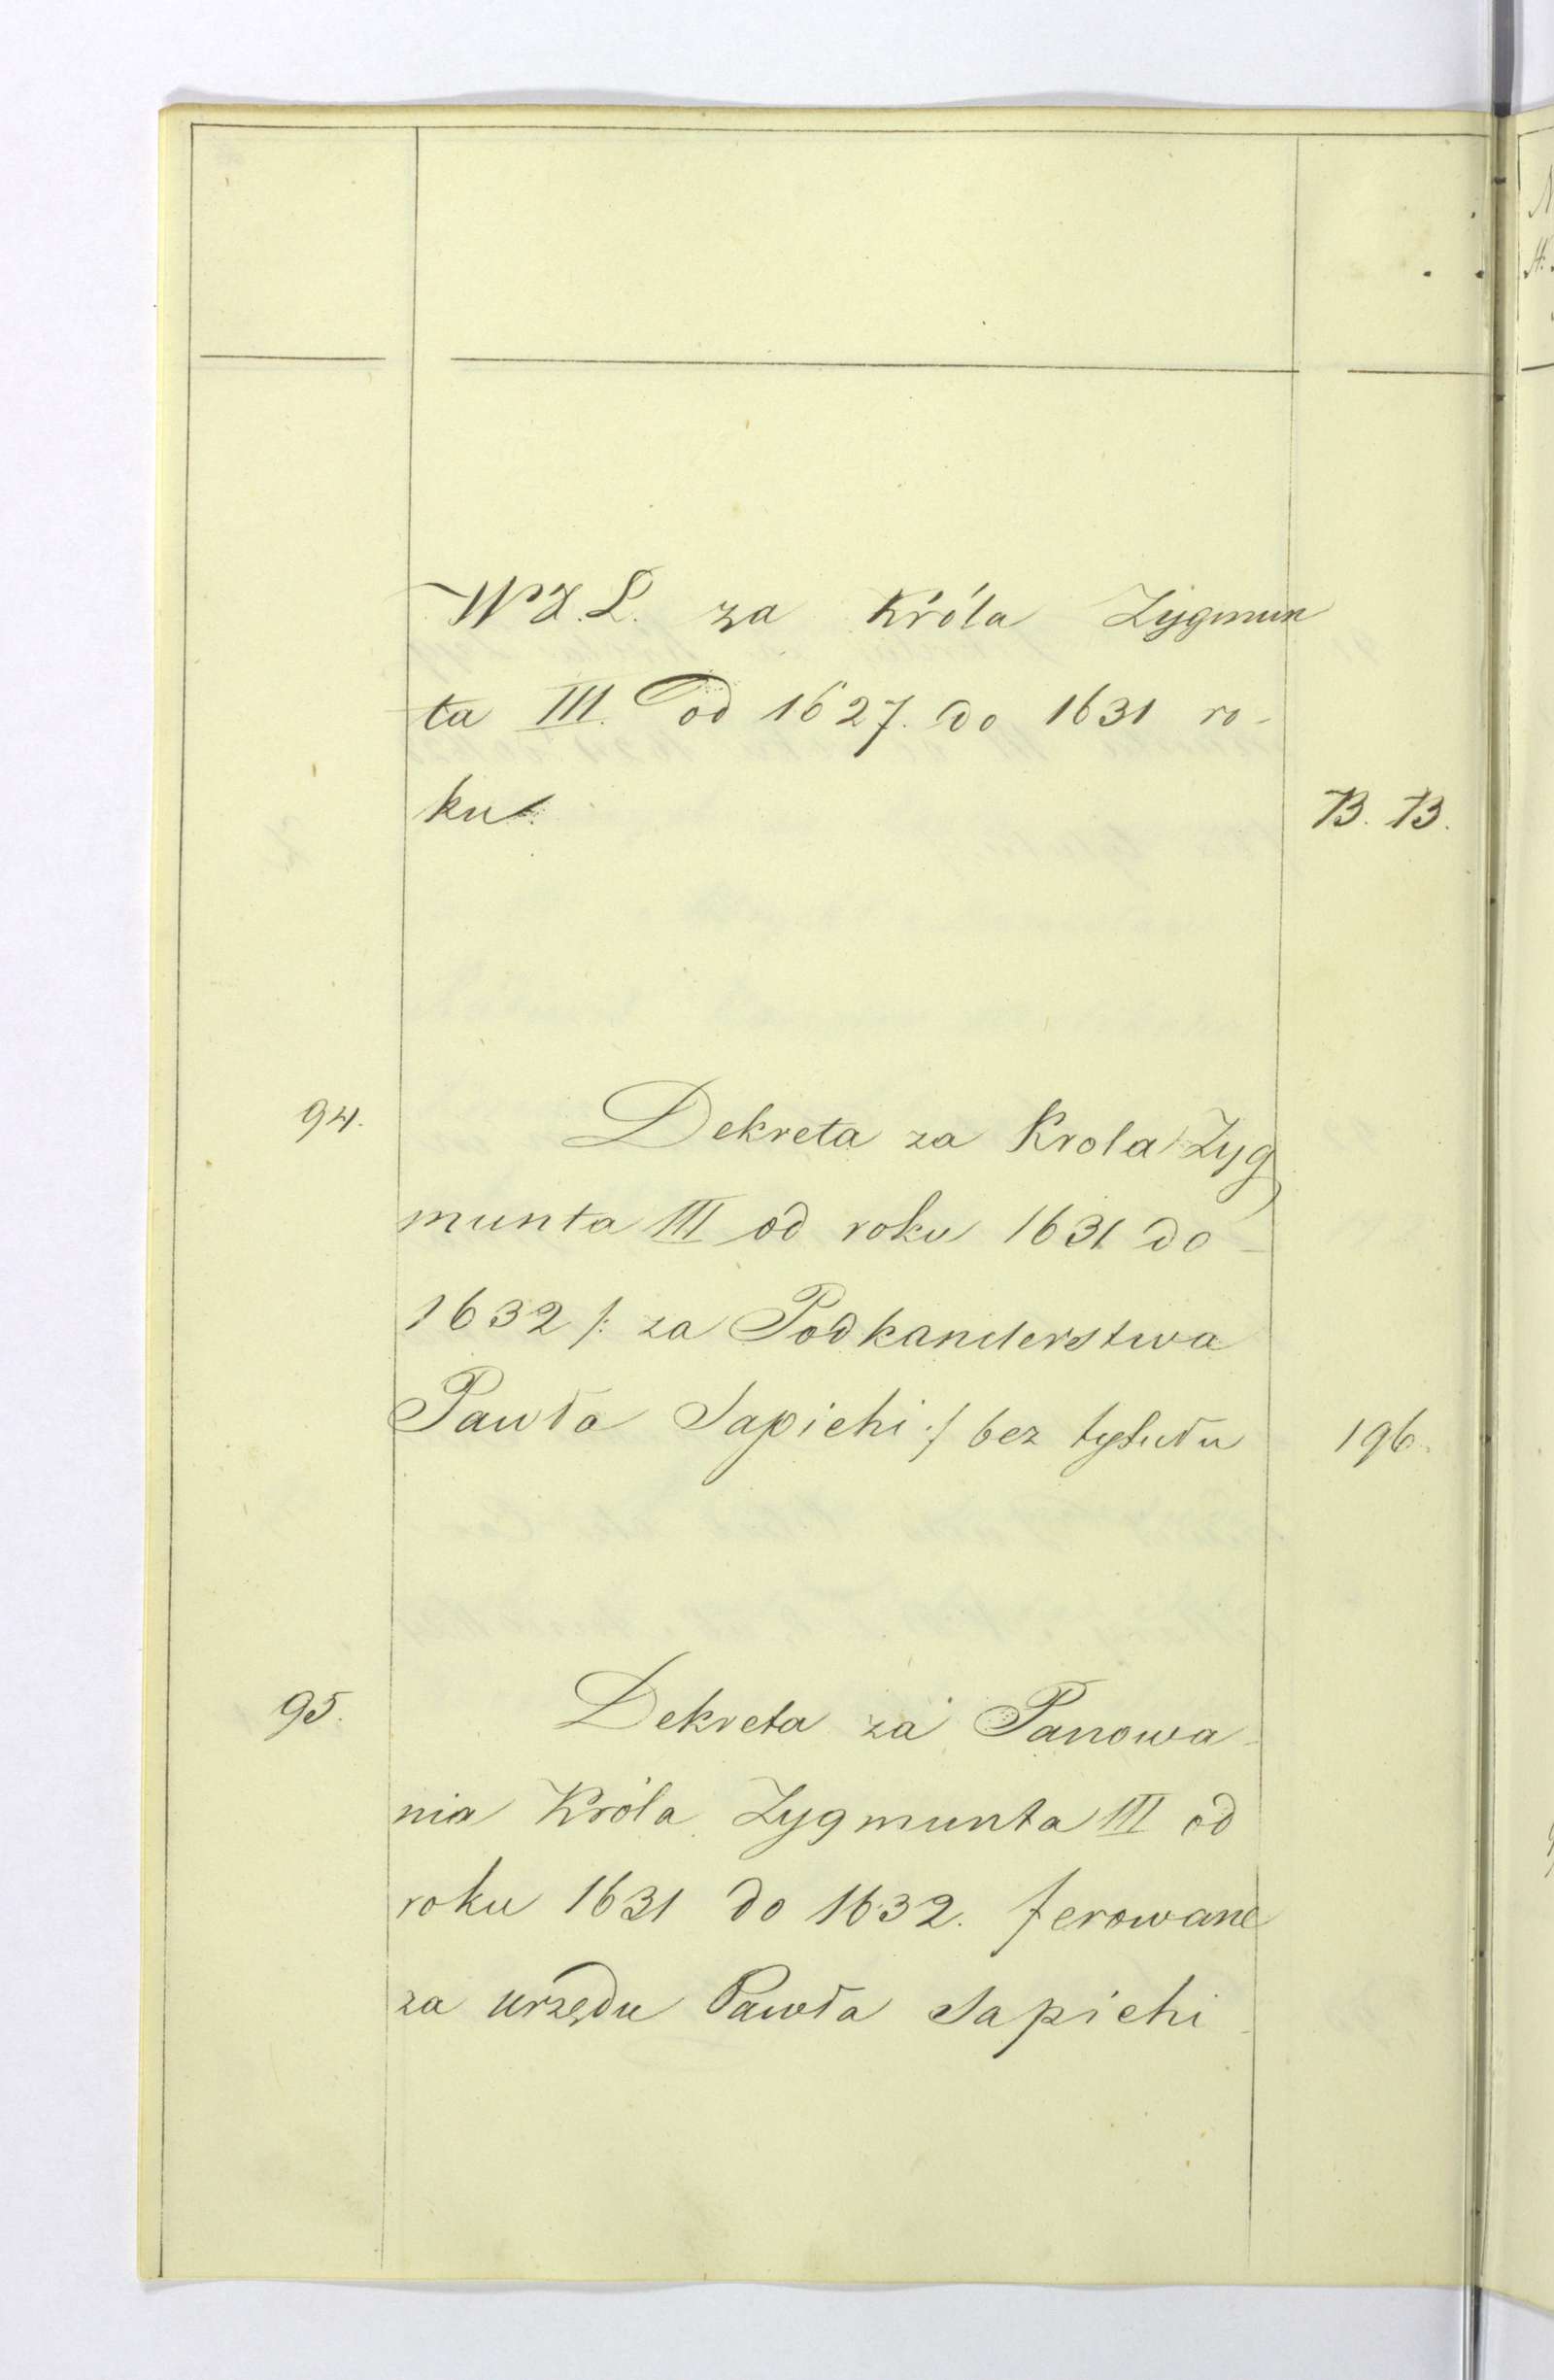 W X. L. za Króla Zygmun
ta III. od 1627. do 1631 ro-
ku. B. B.
94. Dekreta za Krola Zyg
munta III od roku 1631 do
1632 /: za Podkanclerstwa
Pawła Sapiehi :/ bez tytułu 196.
95. Dekreta za Panowa-
nia Króla Zygmunta III od
roku 1631 do 1632. ferowane
za urzędu Pawła Sapiehi